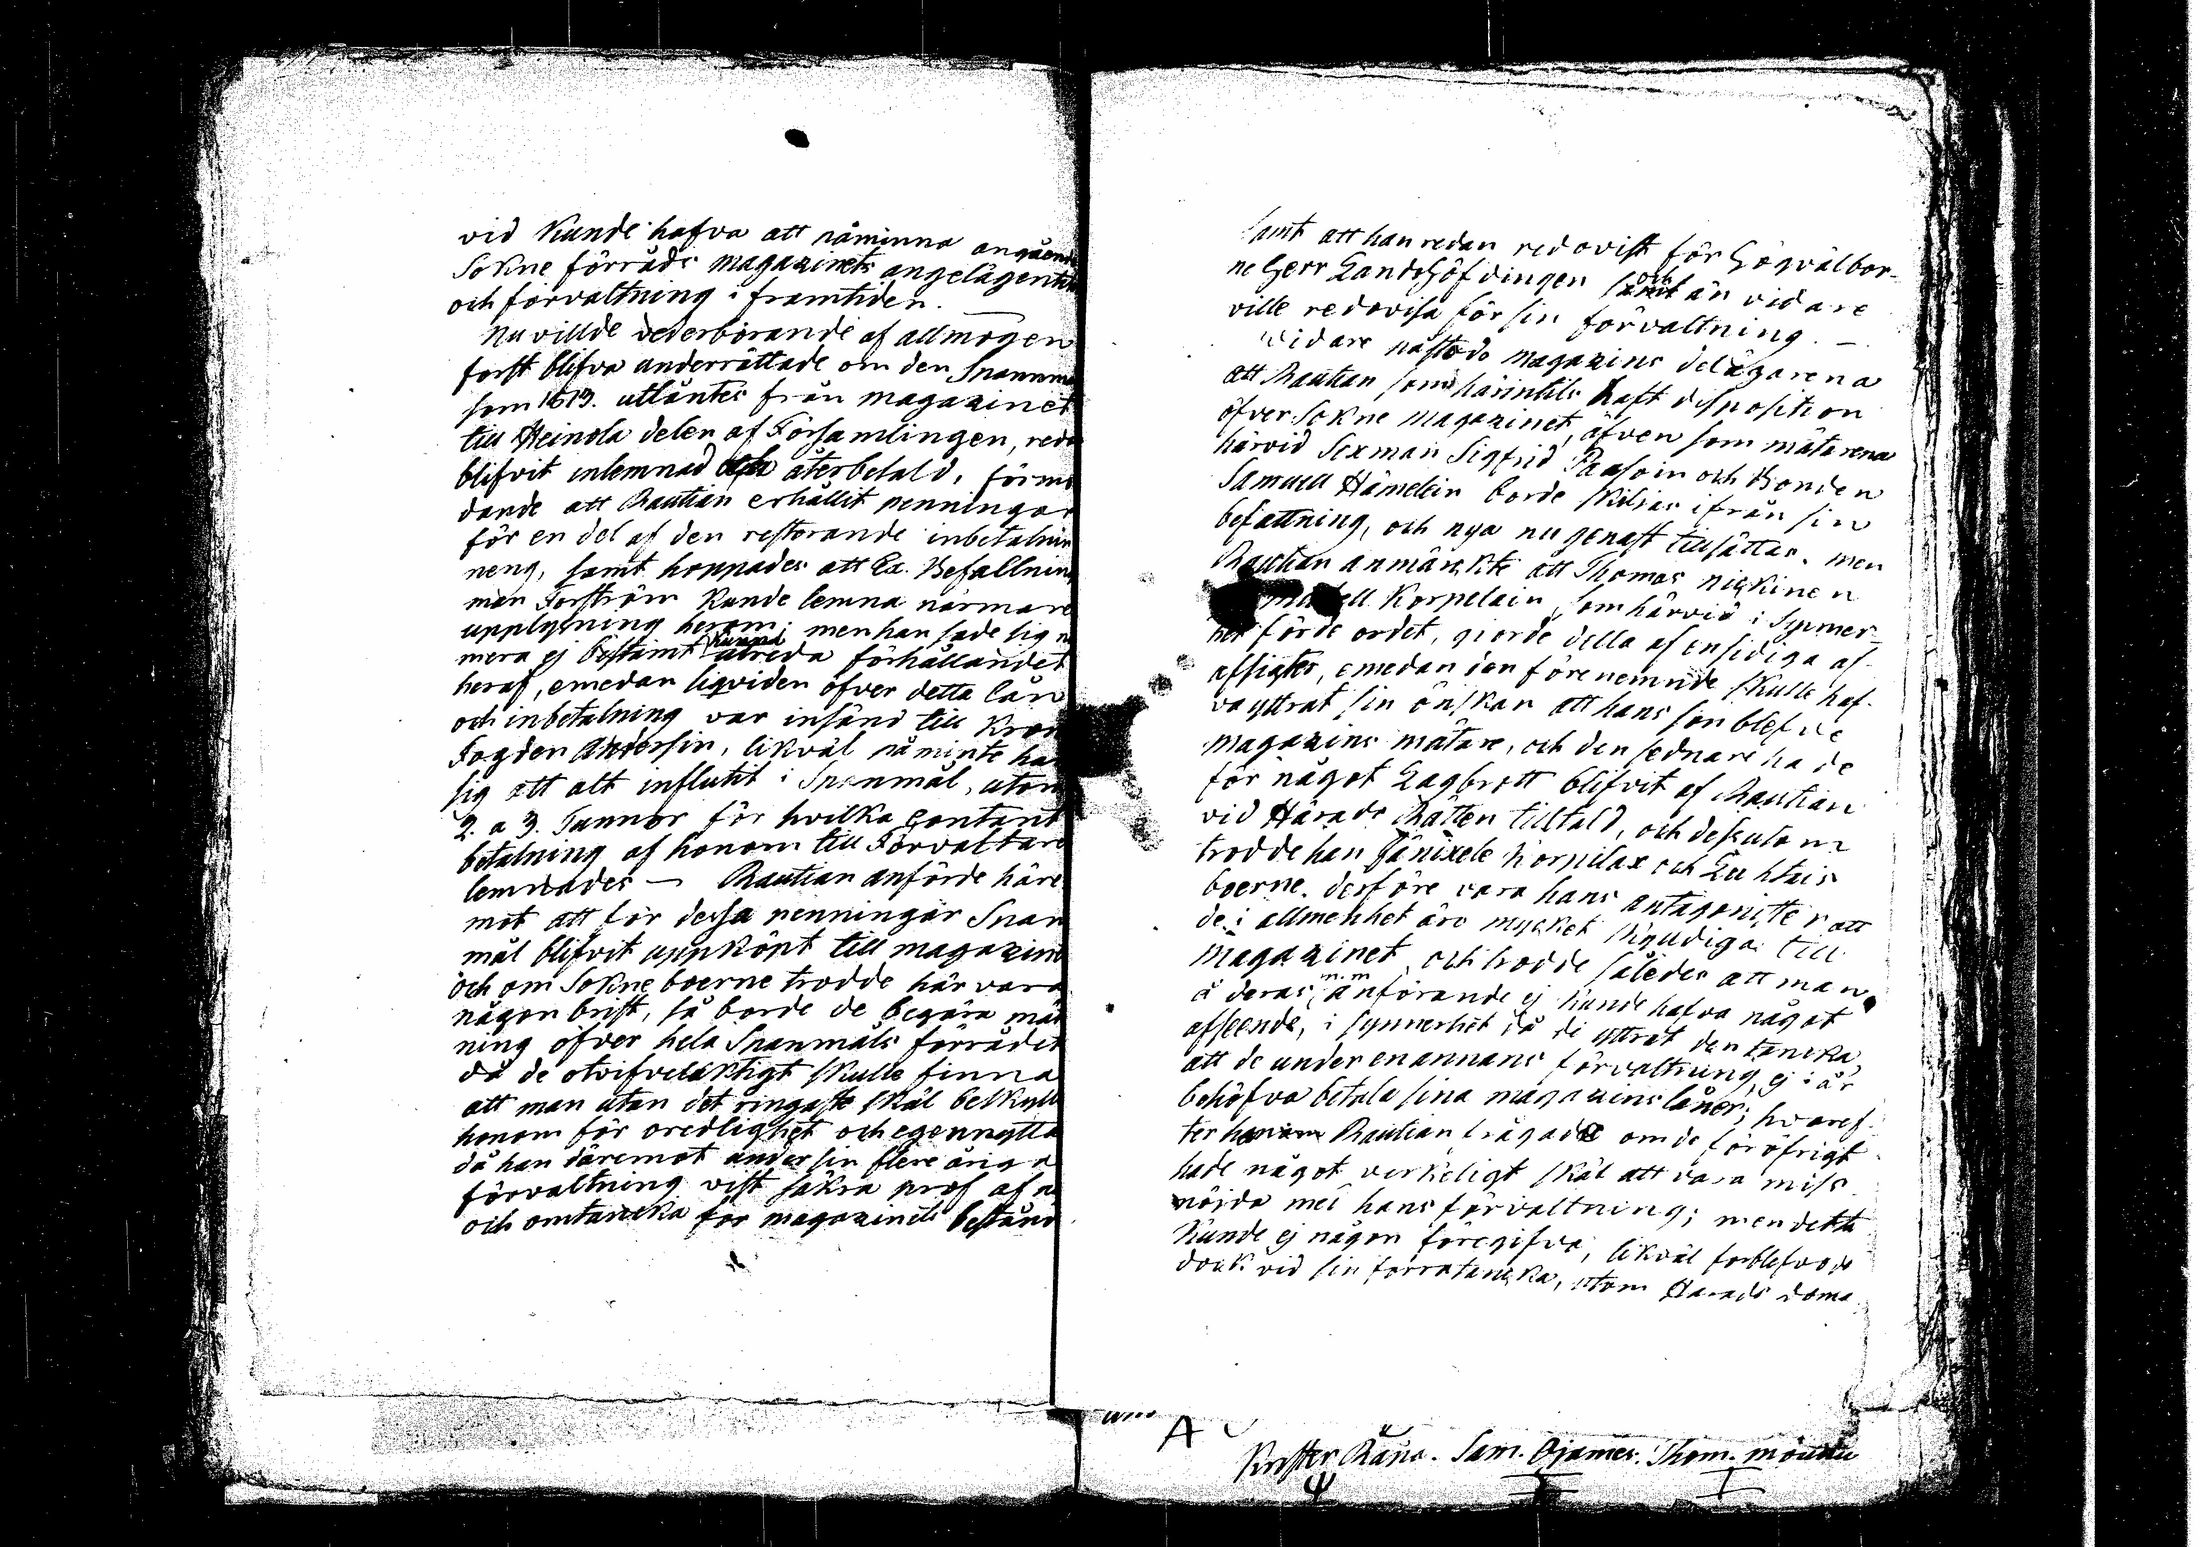 vid Kunde hafva att påminna angående
Sokne förråds magazinets angelägenhet
och förvaltning i framtiden.
Nu villde vederbörande af allmogen
först blifva underrättade om den Spannmå
som 1813. utlåntes från magazinet
till Heinola delen af Församlingen, reda
blifvit inlemnad och återbetald, förme
dande att Rautian erhållit penningar
för en del af den resterande inbetalnin
neng, samt hoppades att Ex. Befallnin
man Forström Kunde lemna närmare
upplysning herom; men han sade sig n
mera ej bestämt Kunna utreda förhållandet
heraf, emedan liqviden öfver detta lån
och inbetalning var insänd till Kron
Fogden Andersin, likväl påminte ha
sig att alt influtit i Spanmål, utom
2. a 3. Tunnor för hvilka contant
betalning af honom till Förvaltare
lemnades — Rautian anförde häre
mot att för dessa penningar Span
mål blifvit uppköpt till magazine
och om Sokne boerne trodde här vara
någon brist, så borde de begära mät
ning öfver hela Spanmåls förrådet
då de otvifvelaktigt skulle finna
att man utan det ringaste skäl beskyll
honom för oredlighet och egennytta
då han däremot under sin flere åriga
förvaltning vist säkra prof af n
och omtancka för magazinets bestånd
samt att han redan redovist för Högvälbor-
ne Herr Landshöfdingen och än vidare
ville redovisa för sin förvaltning. —
Vidare påstodo magazins delägarena
att Rautian som härintils haft disposition
öfver Sokne magazinet, äfven som mätarena
härvid Sexman Sigfrid Paasoin och Bonden
Samuel Hämelein borde skiljas ifrån sin
befattning, och nya nu genast tillsättas. men
Rautian anmärckte att Thomas niskinen
Korpelain, som härvid i Synner-
het förde ordet, giorde detta af ensidiga af-
assigter, emedan den förenemnde skulle haf-
va yttrat sin önskan att hans son blefve
magazins mätare, och den sednare hade
för något Lagbrott blifvit af Rautian
vid Härads Rätten tilltald, och dessutom
trodde han Jänixele Korpilax och Luhtais
boerne. desföre vara hans antagonister att
de i allmenhet äro mycket skyldiga till
magazinet, och trodde således att man
å deras m.m anförande ej kunde hafva något
afseende, i synnerhet då de yttrat den tancka,
att de under en annans förvaltning ej i år
behöfva betala sina magazins låner; hvaref-
ter Rautian frågade om de föröfrigt
hade något verkeligt skäl att vara miss
nöjda med hans förvaltning; men detta
Kunde ej någon föregifva, likväl förblefvo de
dock vid sin förra tancka, utom Härads doma
A
Krister Räna. Sam. Ojamies. Thom. moukku